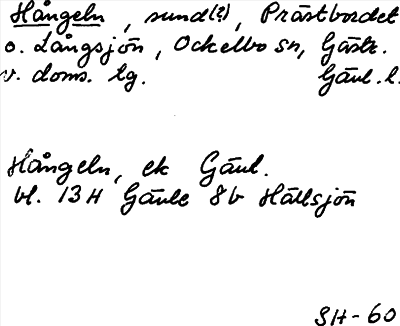 Hångeln, sund(?), Prästbordet
o. Långsjön, Ockelbo sn, Gästr.
v. doms. lg. Gävl. l.
Hångeln, ek Gävl.
bl. 13H Gävle 8b Hällsjön
SH-60